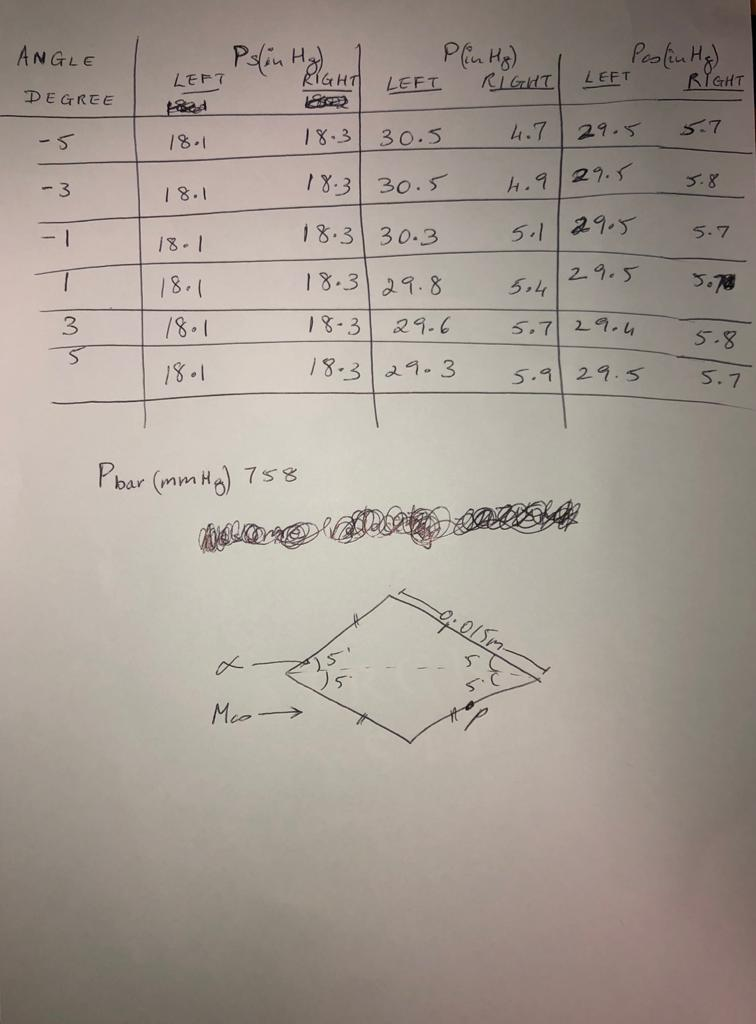 ANGLE Ps(in Hg) P(in Hg) P∞(in Hg)
DEGREE LEFT RIGHT LEFT RIGHT LEFT RIGHT
-5 18.1 18.3 30.5 4.7 29.5 5.7
-3 18.1 18.3 30.5 4.9 29.5 5.8
-1 18.1 18.3 30.3 5.1 29.5 5.7
1 18.1 18.3 29.8 5.4 29.5 5.7
3 18.1 18.3 29.6 5.7 29.4 5.8
5 18.1 18.3 29.3 5.9 29.5 5.7
Pbar (mmHg) 758
0.015m
α 5° 5
5° 5°
M∞ P